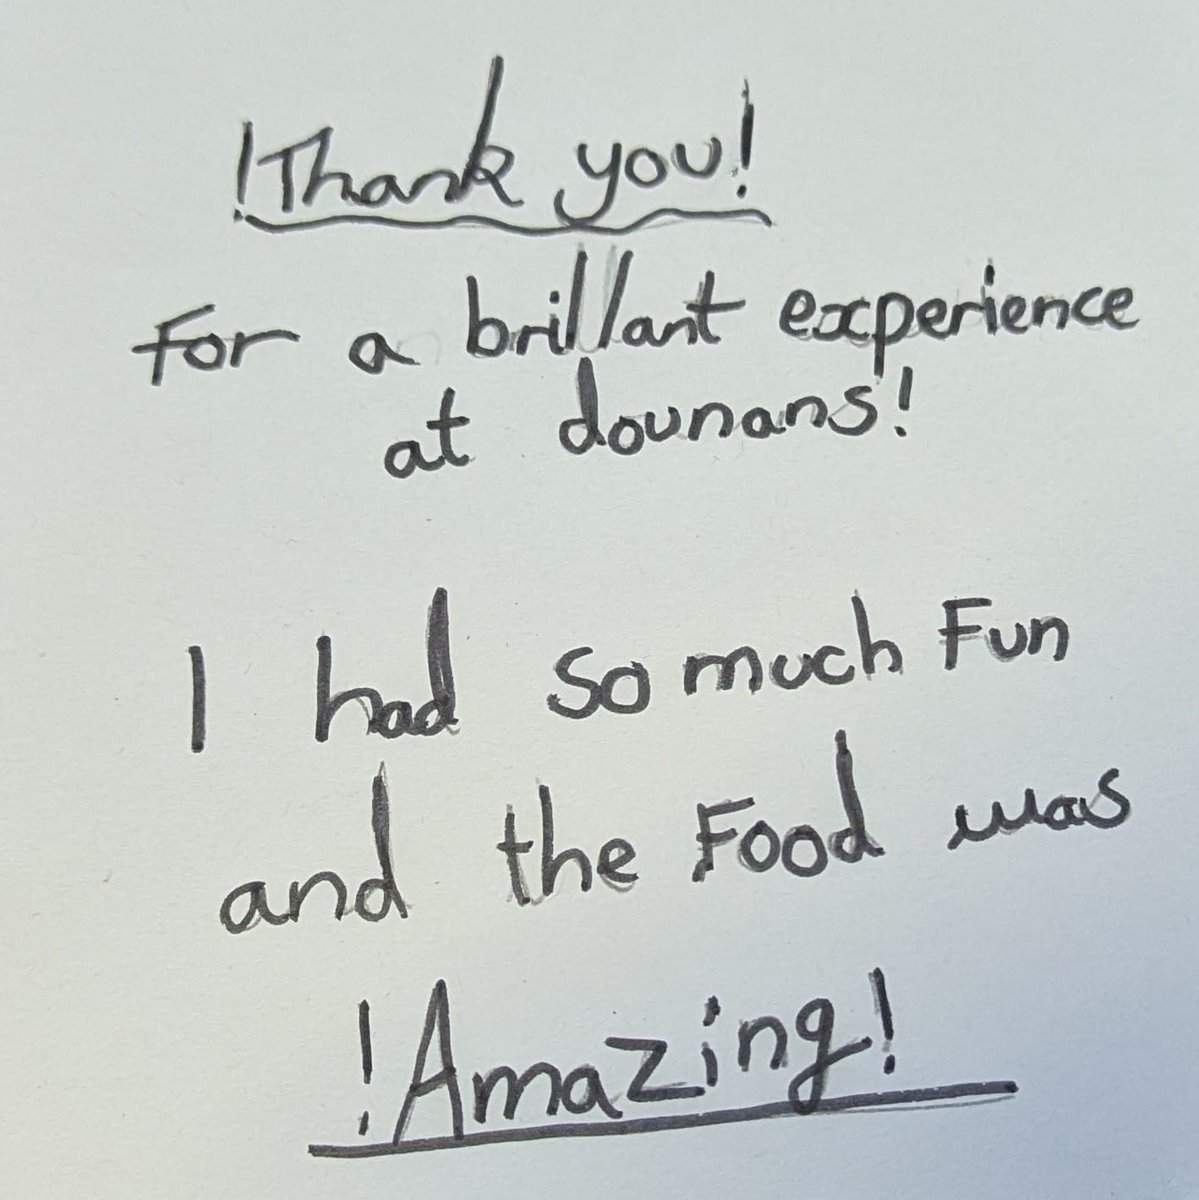 !Thank you!
For a brillant experience
at dounans!
I had so much Fun
and the Food was
!Amazing!